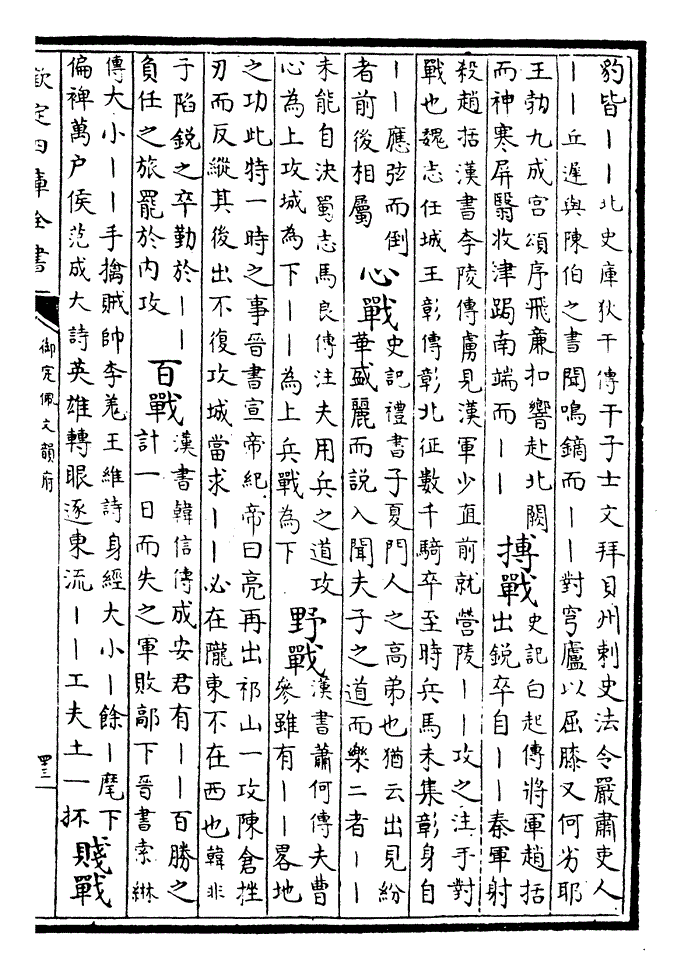 豹皆丨丨北史庫狄干傳干子士文拜貝州刺史法令嚴肅吏人
丨丨丘遲與陳伯之書聞鳴鏑而丨丨對穹廬以屈膝又何劣耶
王勃九成宮頌序飛亷扣響赴北闕
而神寒屏翳收津跼南端而丨丨
搏戰
史記白起傳將軍趙括
出銳卒自丨丨秦軍射
殺趙括漢書李陵傳虜見漢軍少直前就營陵丨丨攻之注手對
戰也魏志任城王彰傳彰北征數千騎卒至時兵馬未集彰身自
丨丨應弦而倒
者前後相屬
心戰
史記禮書子夏門人之高弟也猶云出見紛
華盛麗而説入聞夫子之道而樂二者丨丨
未能自決蜀志馬良傳注夫用兵之道攻
心為上攻城為下丨丨為上兵戰為下
野戰
漢書蕭何傳夫曹
參雖有丨丨畧地
之功此特一時之事晉書宣帝紀帝曰亮再出祁山一攻陳倉挫
刃而反縱其後出不復攻城當求丨丨必在隴東不在西也韓非
于陷銳之卒勤於丨丨
負任之旅罷於内攻
百戰
漢書韓信傳成安君有丨丨百勝之
計一日而失之軍敗鄗下晉書索綝
傳大小丨丨手擒賊帥李羌王維詩身經大小丨餘丨麾下
偏裨萬户侯范成大詩英雄轉眼逐東流丨丨工夫土一抔
賤戰
欽定四庫全書
御定佩文韻府
四三